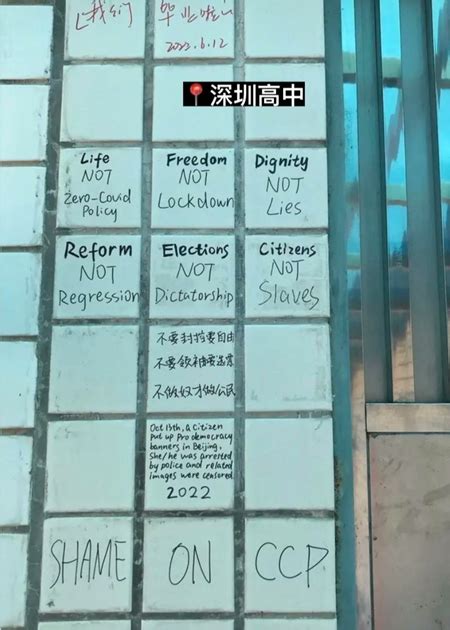 我们 毕业啦
📍深圳高中
Life
NOT
Zero-Covid
Policy
Freedom
NOT
Lockdown
Dignity
NOT
Lies
Reform
NOT
Regression
Elections
NOT
Dictatorship
Citizens
NOT
Slaves
不要封控要自由
不要领袖要选票
不做奴才做公民
Oct 13th, a citizen
put up pro democracy
banners in Beijing.
She/he was arrested
by police and related
images were censored
2022
SHAME ON CCP